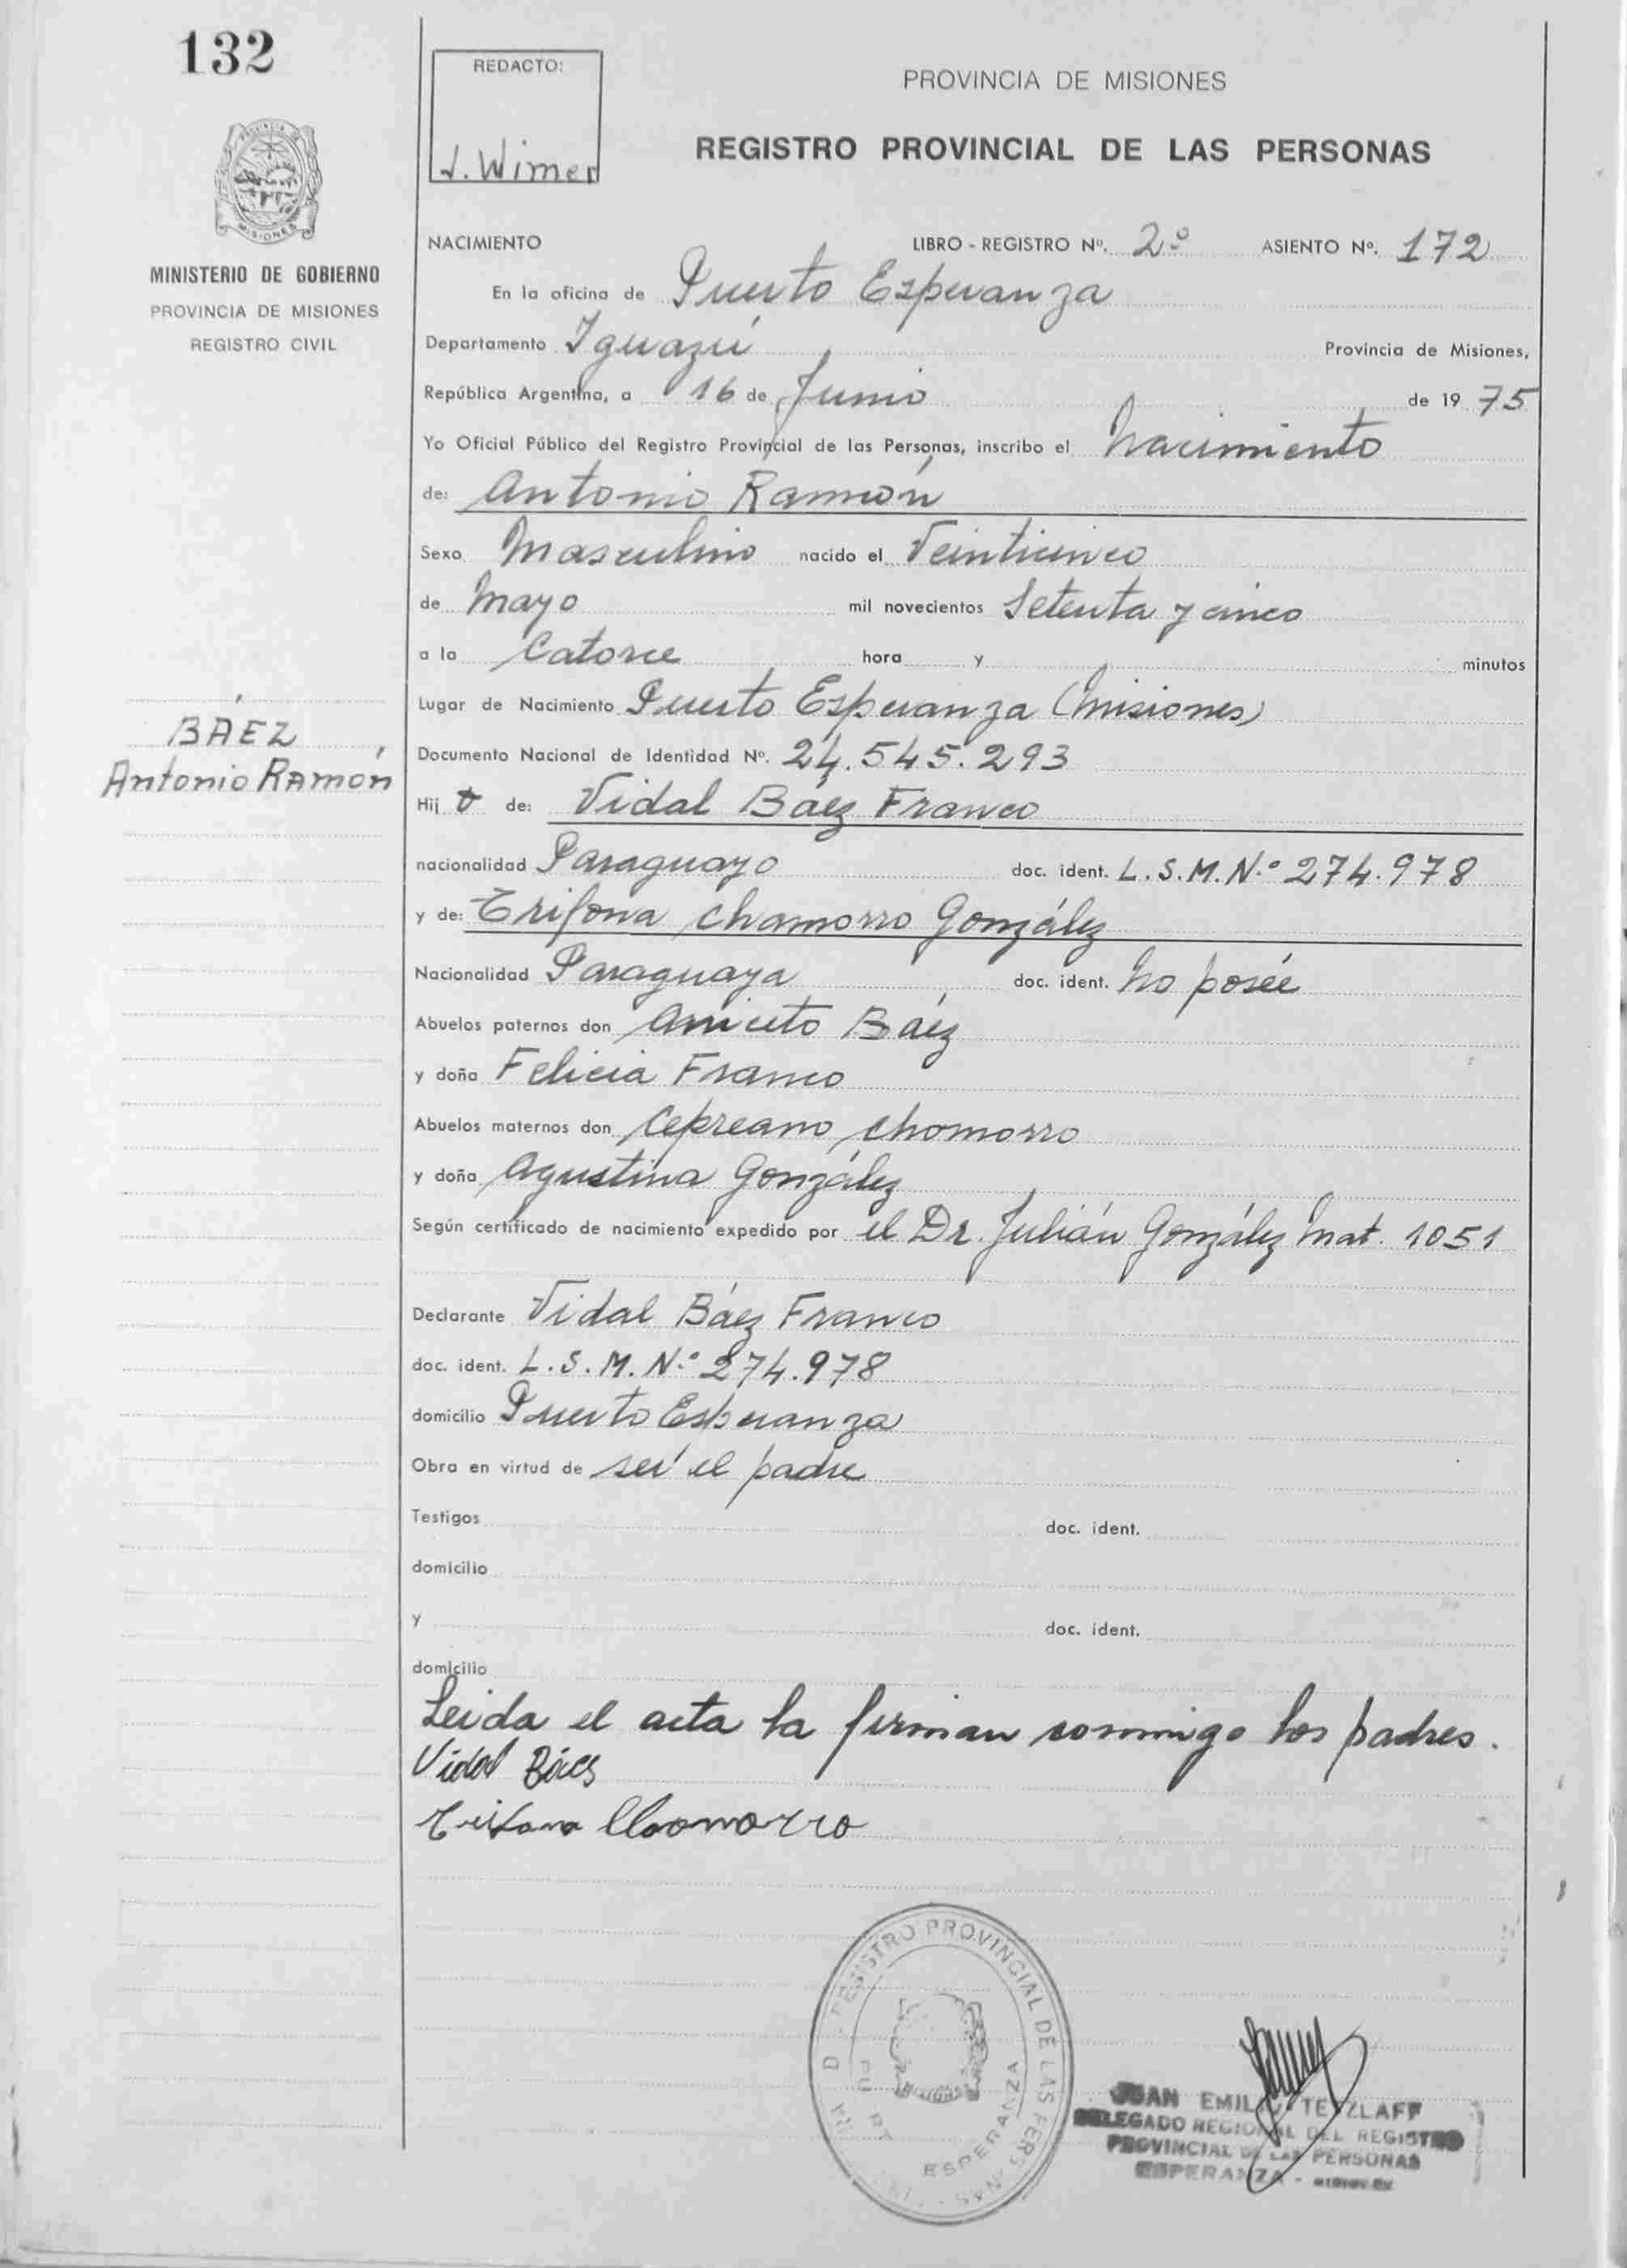 132
REDACTO:
J. Wimer
PROVINCIA DE MISIONES
REGISTRO PROVINCIAL DE LAS PERSONAS
MISIONES
MINISTERIO DE GOBIERNO
PROVINCIA DE MISIONES
REGISTRO CIVIL
NACIMIENTO LIBRO - REGISTRO Nº. 2º ASIENTO Nº. 172
En la oficina de Puerto Esperanza
Departamento Iguazú Provincia de Misiones,
República Argentina, a 16 de Junio de 19 75
Yo Oficial Público del Registro Provincial de las Personas, inscribo el Nacimiento
de: Antonio Ramón
Sexo Masculino nacido el Veinticinco
de Mayo mil novecientos Setenta y cinco
a la Catorce hora y minutos
Lugar de Nacimiento Puerto Esperanza (Misiones)
BÁEZ
Antonio Ramón
Documento Nacional de Identidad Nº. 24.545.293
Hij o de: Vidal Báez Franco
nacionalidad Paraguayo doc. ident. L.S.M.N.º 274.978
y de: Trifona Chamorro González
Nacionalidad Paraguaya doc. ident. No posée
Abuelos paternos don Aniceto Báez
y doña Felicia Franco
Abuelos maternos don Cepreano Chomorro
y doña Agustina González
Según certificado de nacimiento expedido por el Dr. Julián González Mat. 1051
Declarante Vidal Báez Franco
doc. ident. L.S.M.N.º 274.978
domicilio Puerto Esperanza
Obra en virtud de ser el padre
Testigos doc. ident.
domicilio
y doc. ident.
domicilio
Leida el acta la firman conmigo los padres.
Vidal Báes
Trifona Chamorro
REGISTRO PROVINCIAL DE LAS PERSONAS
ESPERANZA
JUAN EMILIO TETZLAFF
DELEGADO REGIONAL DEL REGISTRO
PROVINCIAL DE LAS PERSONAS
ESPERANZA - MISIONES